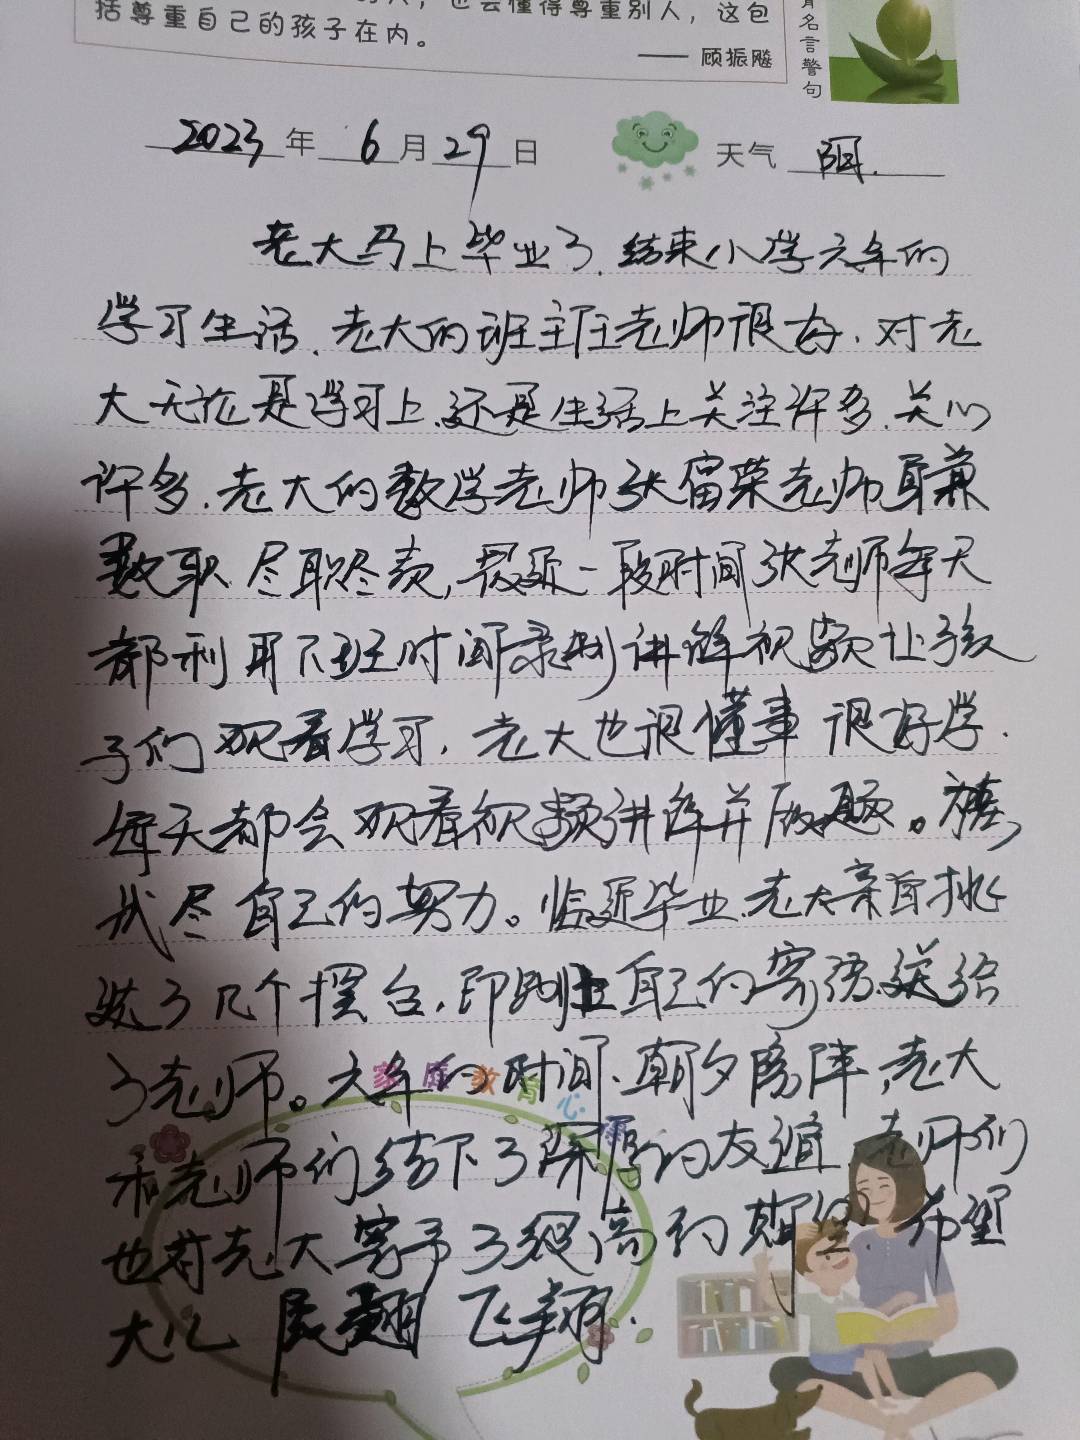 也会懂得尊重别人，这包
括尊重自己的孩子在内。
—— 顾振飚
名言警句
2023年6月29日 天气 阴.
老大马上毕业了.结束小学六年的
学习生活.老大的班主任老师很好.对老
大无论是学习上.还是生活上关注许多.关心
许多.老大的数学老师张富荣老师身兼
数职.尽职尽责,最近一段时间张老师每天
都利用下班时间录制讲解视频让孩
子们观看学习.老大也很懂事 很好学.
每天都会观看视频讲解并做题。
我尽自己的努力。临近毕业.老大亲自挑
选了几个摆台.印刷上自己的寄语送给
了老师。六年的时间.朝夕陪伴,老大
和老师们结下了深厚的友谊.老师们
也对老大寄予了很高的期望.希望
大儿 展翅 飞翔.
家庭教育心